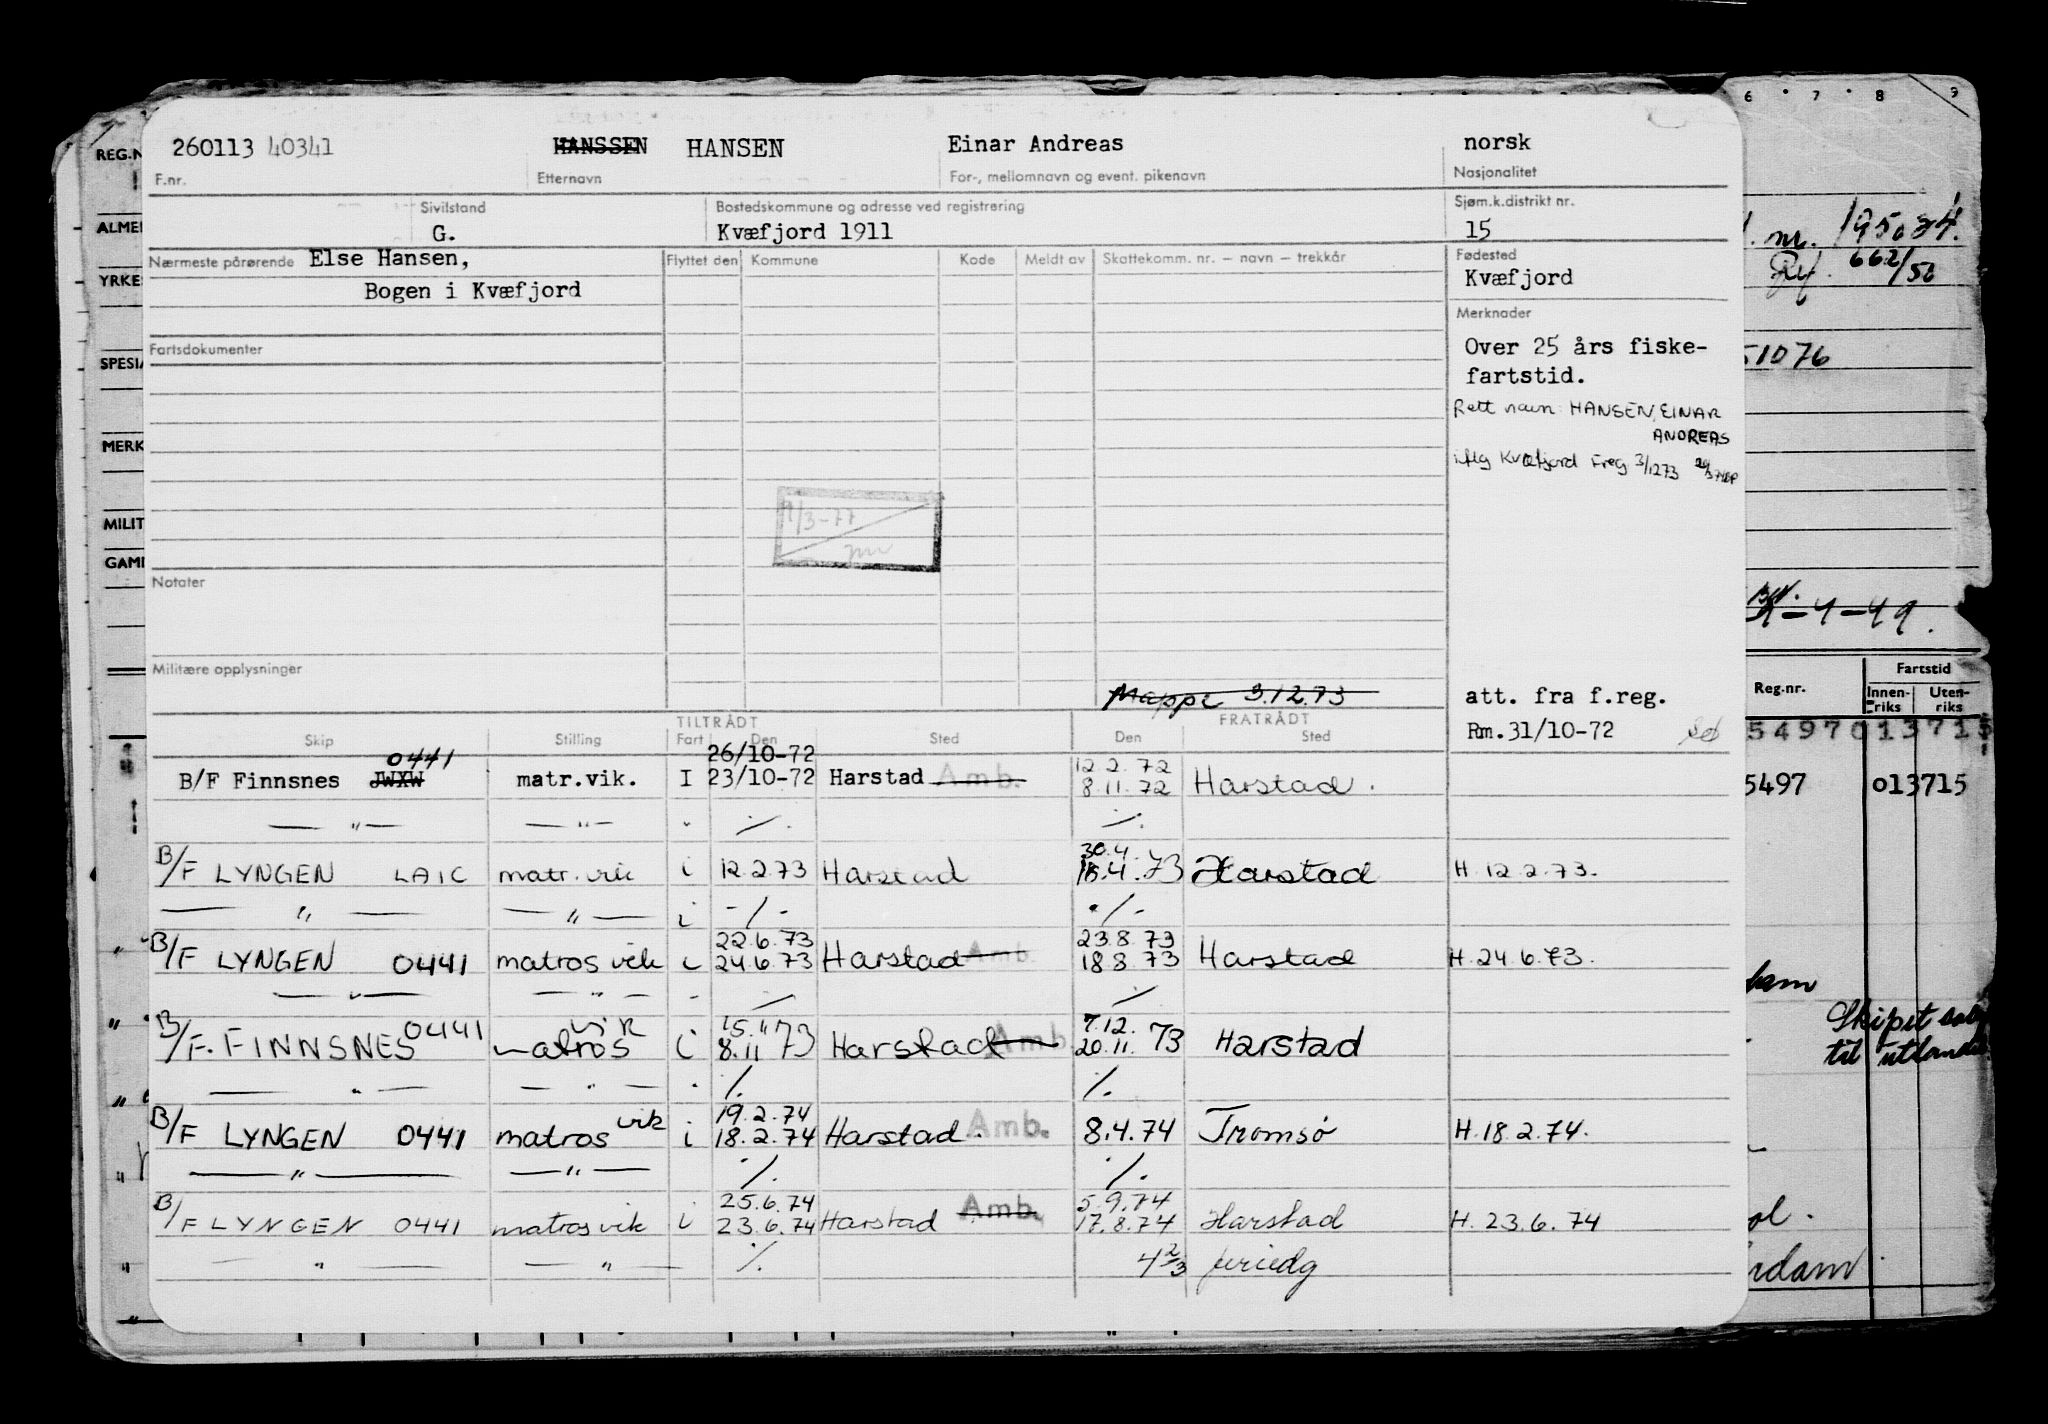 260113 40341 HANSSEN HANSEN Einar Andreas norsk
F.nr. Etternavn For-, mellomnavn og event. pikenavn Nasjonalitet
Sivilstand Bostedskommune og adresse ved registrering Sjøm.k.distrikt nr.
G. Kvæfjord 1911 15
Nærmeste pårørende Else Hansen, Flyttet den Kommune Kode Meldt av Skattekomm. nr. – navn – trekkår Fødested
Bogen i Kvæfjord Kvæfjord
Merknader
Fartsdokumenter Over 25 års fiske-
fartstid.
Rett navn: HANSEN, EINAR
ANDREAS
iflg Kvæfjord Freg 3/1273
11/3-77
Notater
Militære opplysninger
Mappe 3.12.73 att. fra f.reg.
TILTRÅDT FRATRÅDT
Skip Stilling Fart Den Sted Den Sted Rm.31/10-72
0441 26/10-72 12.2.72
B/F Finnsnes JWXW matr.vik. I 23/10-72 Harstad Amb. 8.11.72 Harstad.
— " — — " — " ./. ./.
30.4.
B/F LYNGEN LAIC matr. vik i 12.2.73 Harstad 18.4.73 Harstad H. 12.2.73.
— " — — " — i -/- ./.
22.6.73 23.8.73
B/F LYNGEN 0441 matros vik i 24.6.73 Harstad Amb. 18.8.73 Harstad H. 24.6.73.
— " — — " — - ./. ./.
0441 vik 15.11 7.12.
B/F. FINNSNES matros i 8.11 73 Harstad Amb. 20.11. 73 Harstad
— " — — " — . ./. ./.
vik 19.2.74
B/F LYNGEN 0441 matros i 18.2.74 Harstad. Amb. 8.4.74 Tromsø H. 18.2.74.
— " — — " — ./. ./.
25.6.74 5.9.74
B/F LYNGEN 0441 matros vik i 23.6.74 Harstad Amb. 17.8.74 Harstad H. 23.6.74
— " — — " — ./. 4 2/3 feriedg
6 7 8 9
REG.N
ALMEN
nr. 195034.
YRKES
Ref. 662/50
SPESIA
51076
MERK
MILIT
GAML
-9-49.
Reg.nr. Fartstid
Innen-riks Uten-riks
5497013715
5497 013715
Skipet solgt
til utlandet